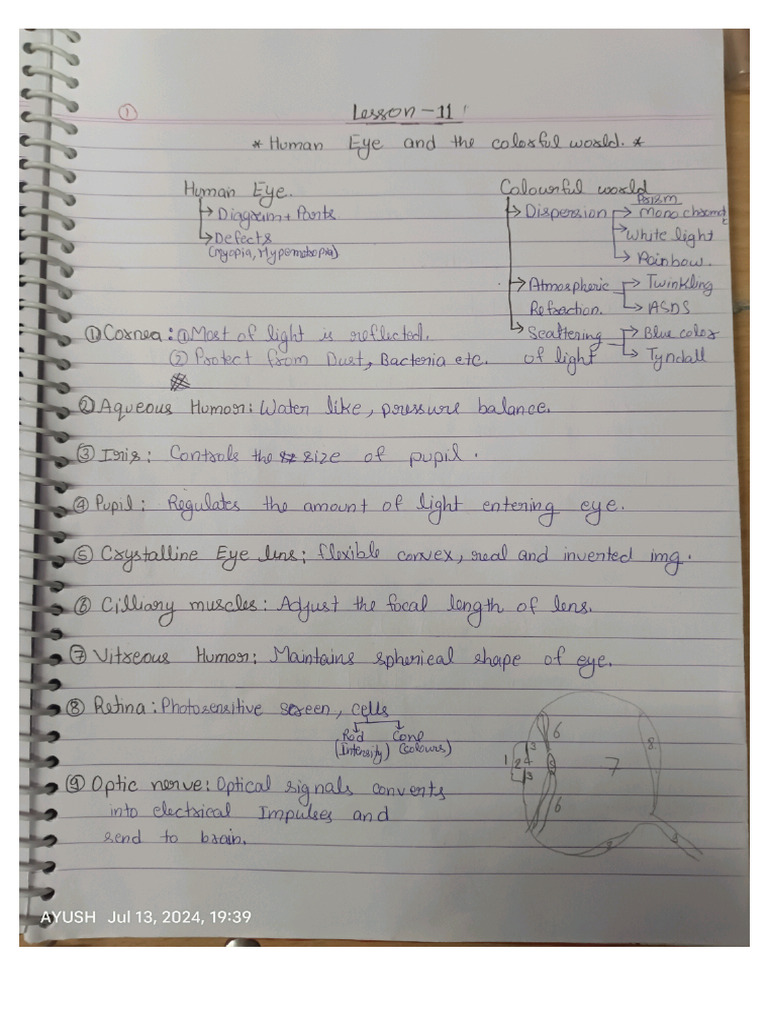 ①
Lesson - 11
* Human Eye and the colorful world. *
Human Eye.
→ Diagram + Parts
→ Defects
(Myopia, Hypermetropia)
Colourful world
→ Dispersion → Prism
→ Monochromat
→ White light
→ Rainbow.
→ Atmospheric Refraction. → Twinkling
→ ASDS
→ Scattering of light → Blue color
→ Tyndall
① Cornea: ① Most of light is reflected.
② Protect from Dust, Bacteria etc.
② Aqueous Humor: Water like, pressure balance.
③ Iris: Controls the size of pupil.
④ Pupil: Regulates the amount of light entering eye.
⑤ Crystalline Eye lens; flexible convex, real and inverted img.
⑥ Cilliary muscles: Adjust the focal length of lens.
⑦ Vitreous Humor: Maintains spherical shape of eye.
⑧ Retina: Photosensitive screen, cells
Rod Cone
(Intensity) (colours)
⑨ Optic nerve: Optical signals converts
into electrical Impulses and
send to brain.
6
3
8
1 2 4 5 7
3
6
8
AYUSH Jul 13, 2024, 19:39